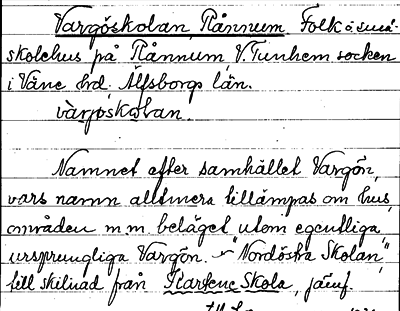 Vargöskolan, Rånnum. Folk & små-
skolehus på Rånnum, V. Tunhem socken
i Väne hd. Älfsborgs län.
vàrjoskolan.
Namnet efter samhället Vargön,
vars namn alltmera tillämpas om hus,
områden m.m. beläget utom egentliga
ursprungliga Vargön. "Nordöstra Skolan",
till skilnad från Skola, jämf.